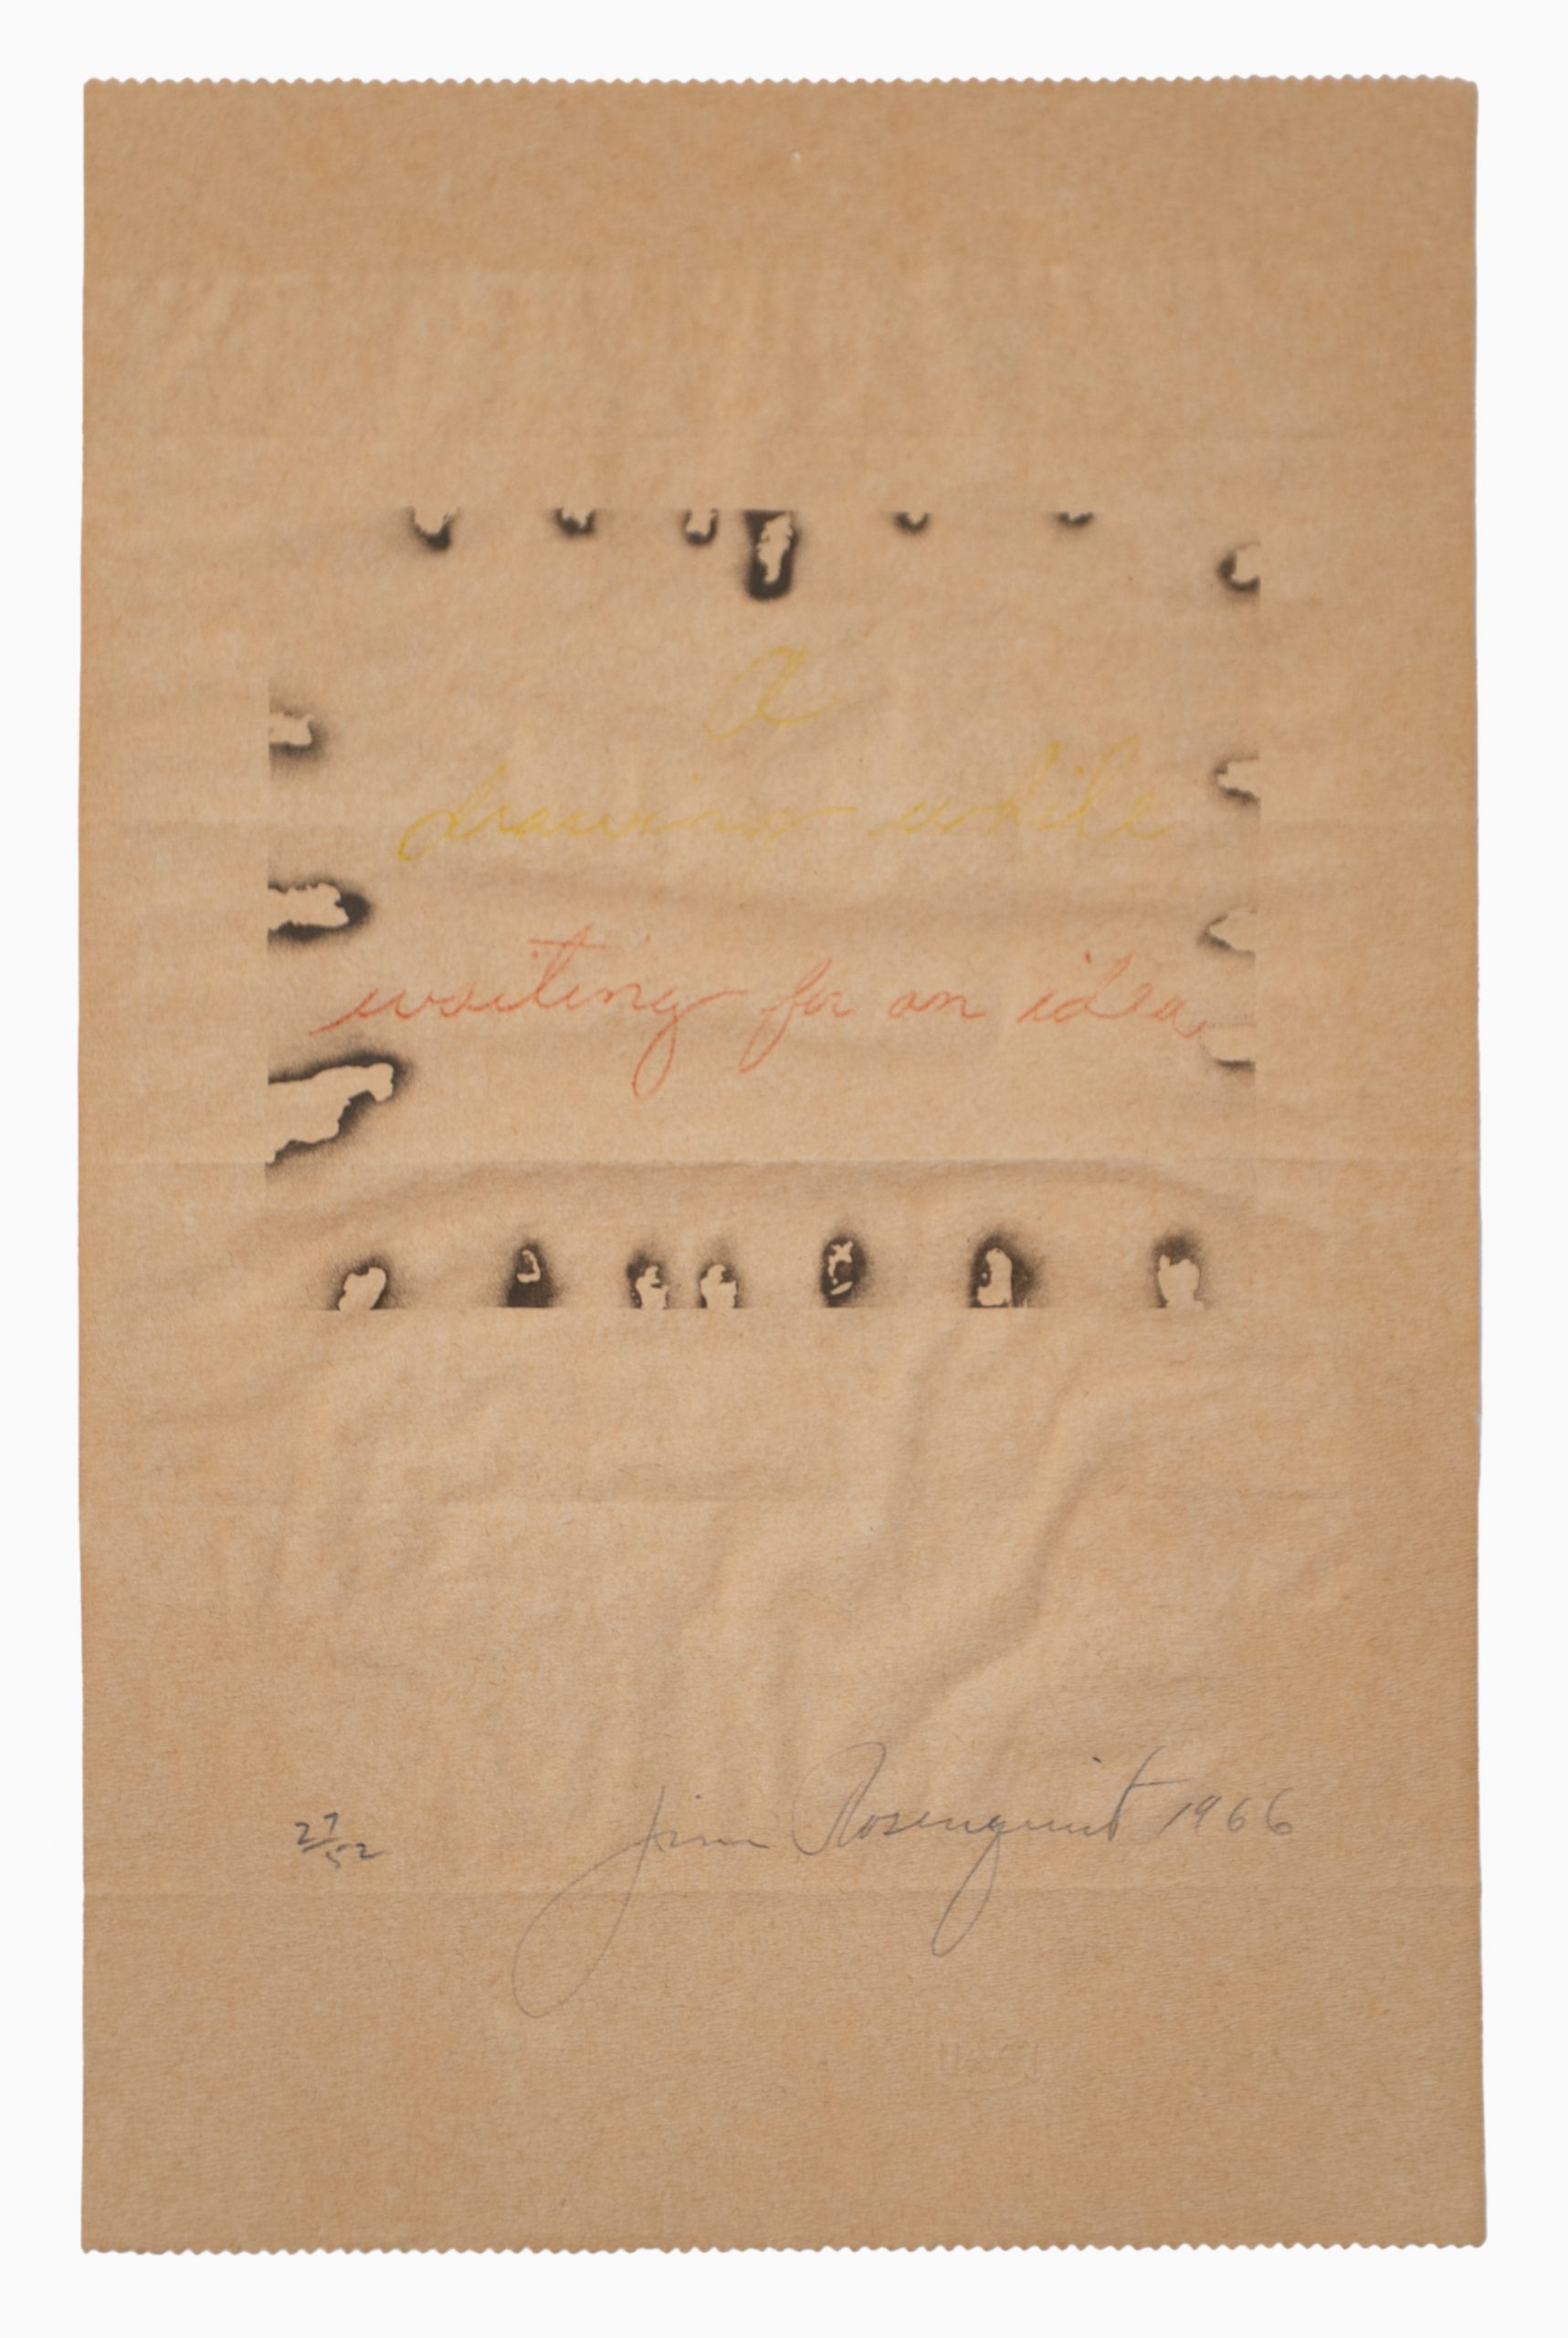 a
drawing while
waiting for an idea
27/52
Jim Rosenquist 1966